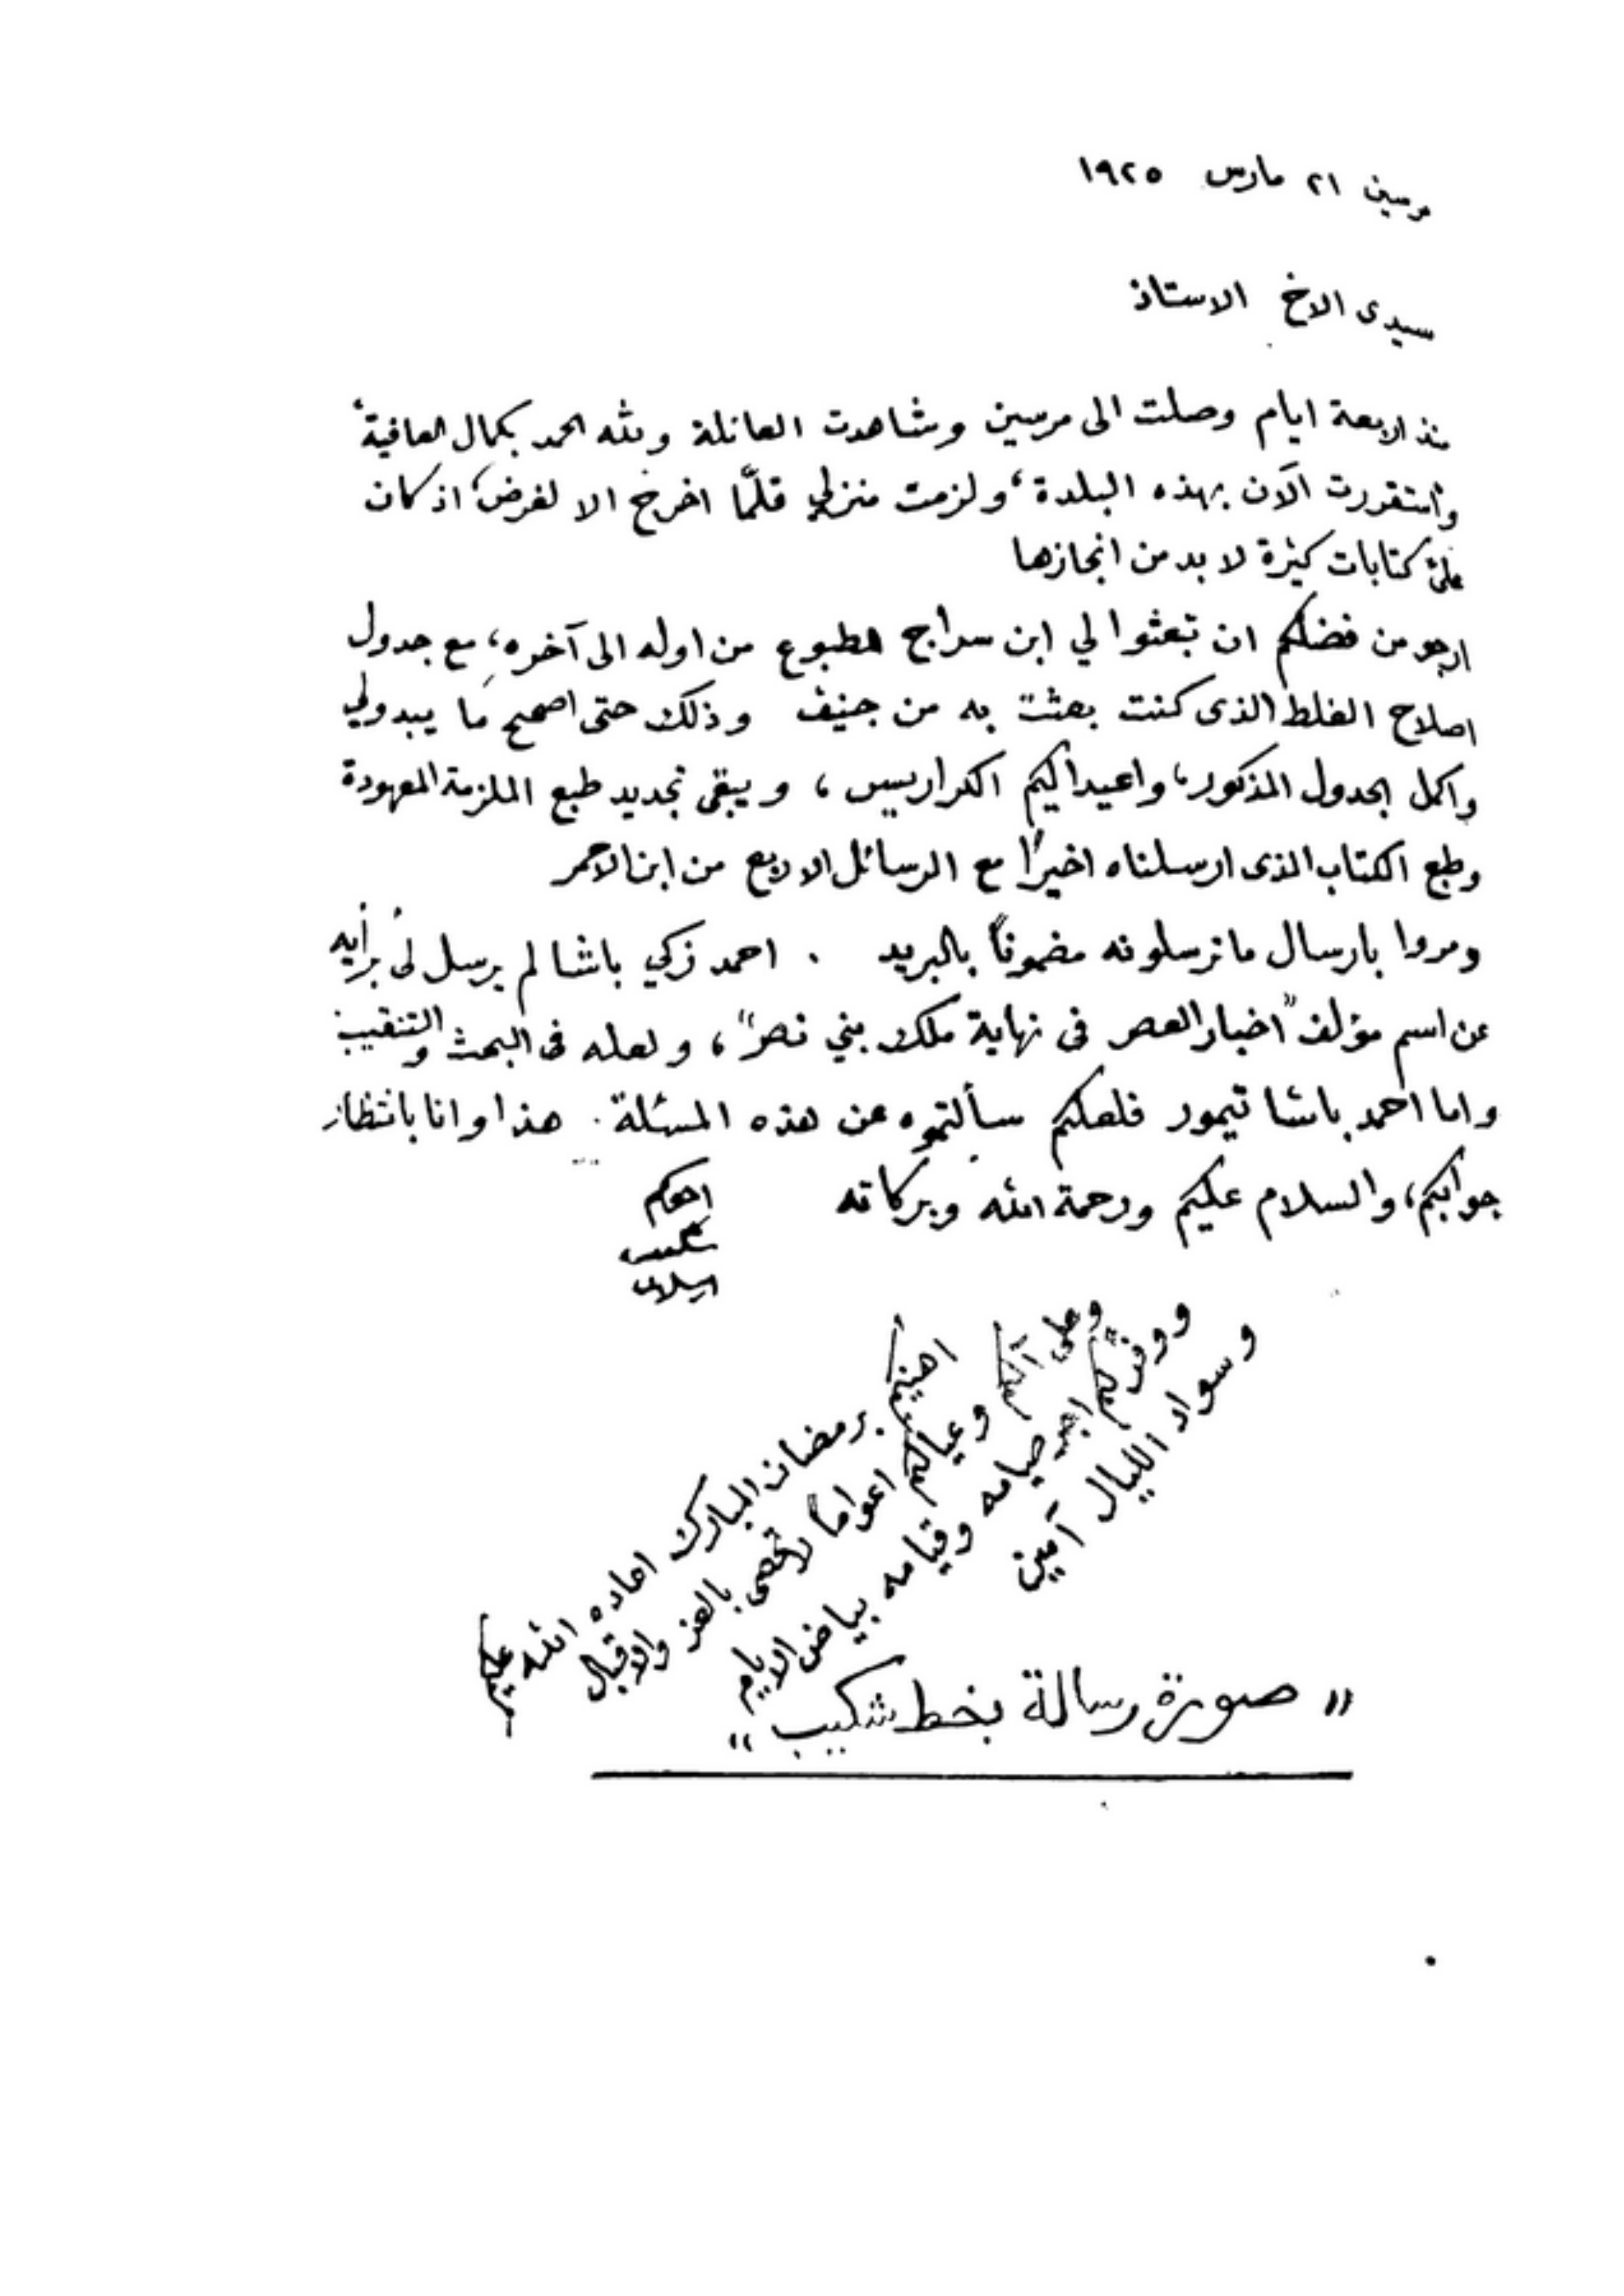 مرسين ٢١ مارس ١٩٢٥
سيدى الاخ الاستاذ
منذ اربعة ايام وصلت الى مرسين وشاهدت العائلة ولله الحمد بكمال العافية،
وأستقررت الآن بهذه البلدة، ولزمت منزلي قلّما اخرج الا لغرض، اذ كان
علىّ كتابات كثيرة لا بد من انجازها
ارجو من فضلكم ان تبعثوا لي ابن سراج المطبوع من اوله الى آخره، مع جدول
اصلاح الغلط الذى كنت بعثت به من جنيف وذلك حتى اصحح ما يبدو لي
واكمل الجدول المذكور، واعيد اليكم الكراريس، ويبقى تجديد طبع الملزمة المعهودة
وطبع الكتاب الذى ارسلناه اخيرًا مع الرسائل الاربع من ابن الاحمر
ومروا بارسال ما ترسلونه مضمونًا بالبريد . احمد زكي باشا لم يرسل لى برأيه
عن اسم مؤلف "اخبار العصر فى نهاية ملك بني نصر"، ولعله فى البحث والتنقيب
واما احمد باشا تيمور فلعلكم سألتموه عن هذه المسئلة. هذا وانا بانتظار
جوابكم، والسلام عليكم ورحمة الله وبركاته
اخوكم
شكيب
ارسلان
اهنئكم برمضان المبارك اعاده الله عليكم
وعلى آلكم وعيالكم اعوامًا لا تحصى بالعز والاقبال
ووفقكم الله صيامه وقيامه بياض الايام
وسواد الليال آمين
" صورة رسالة بخط شكيب "